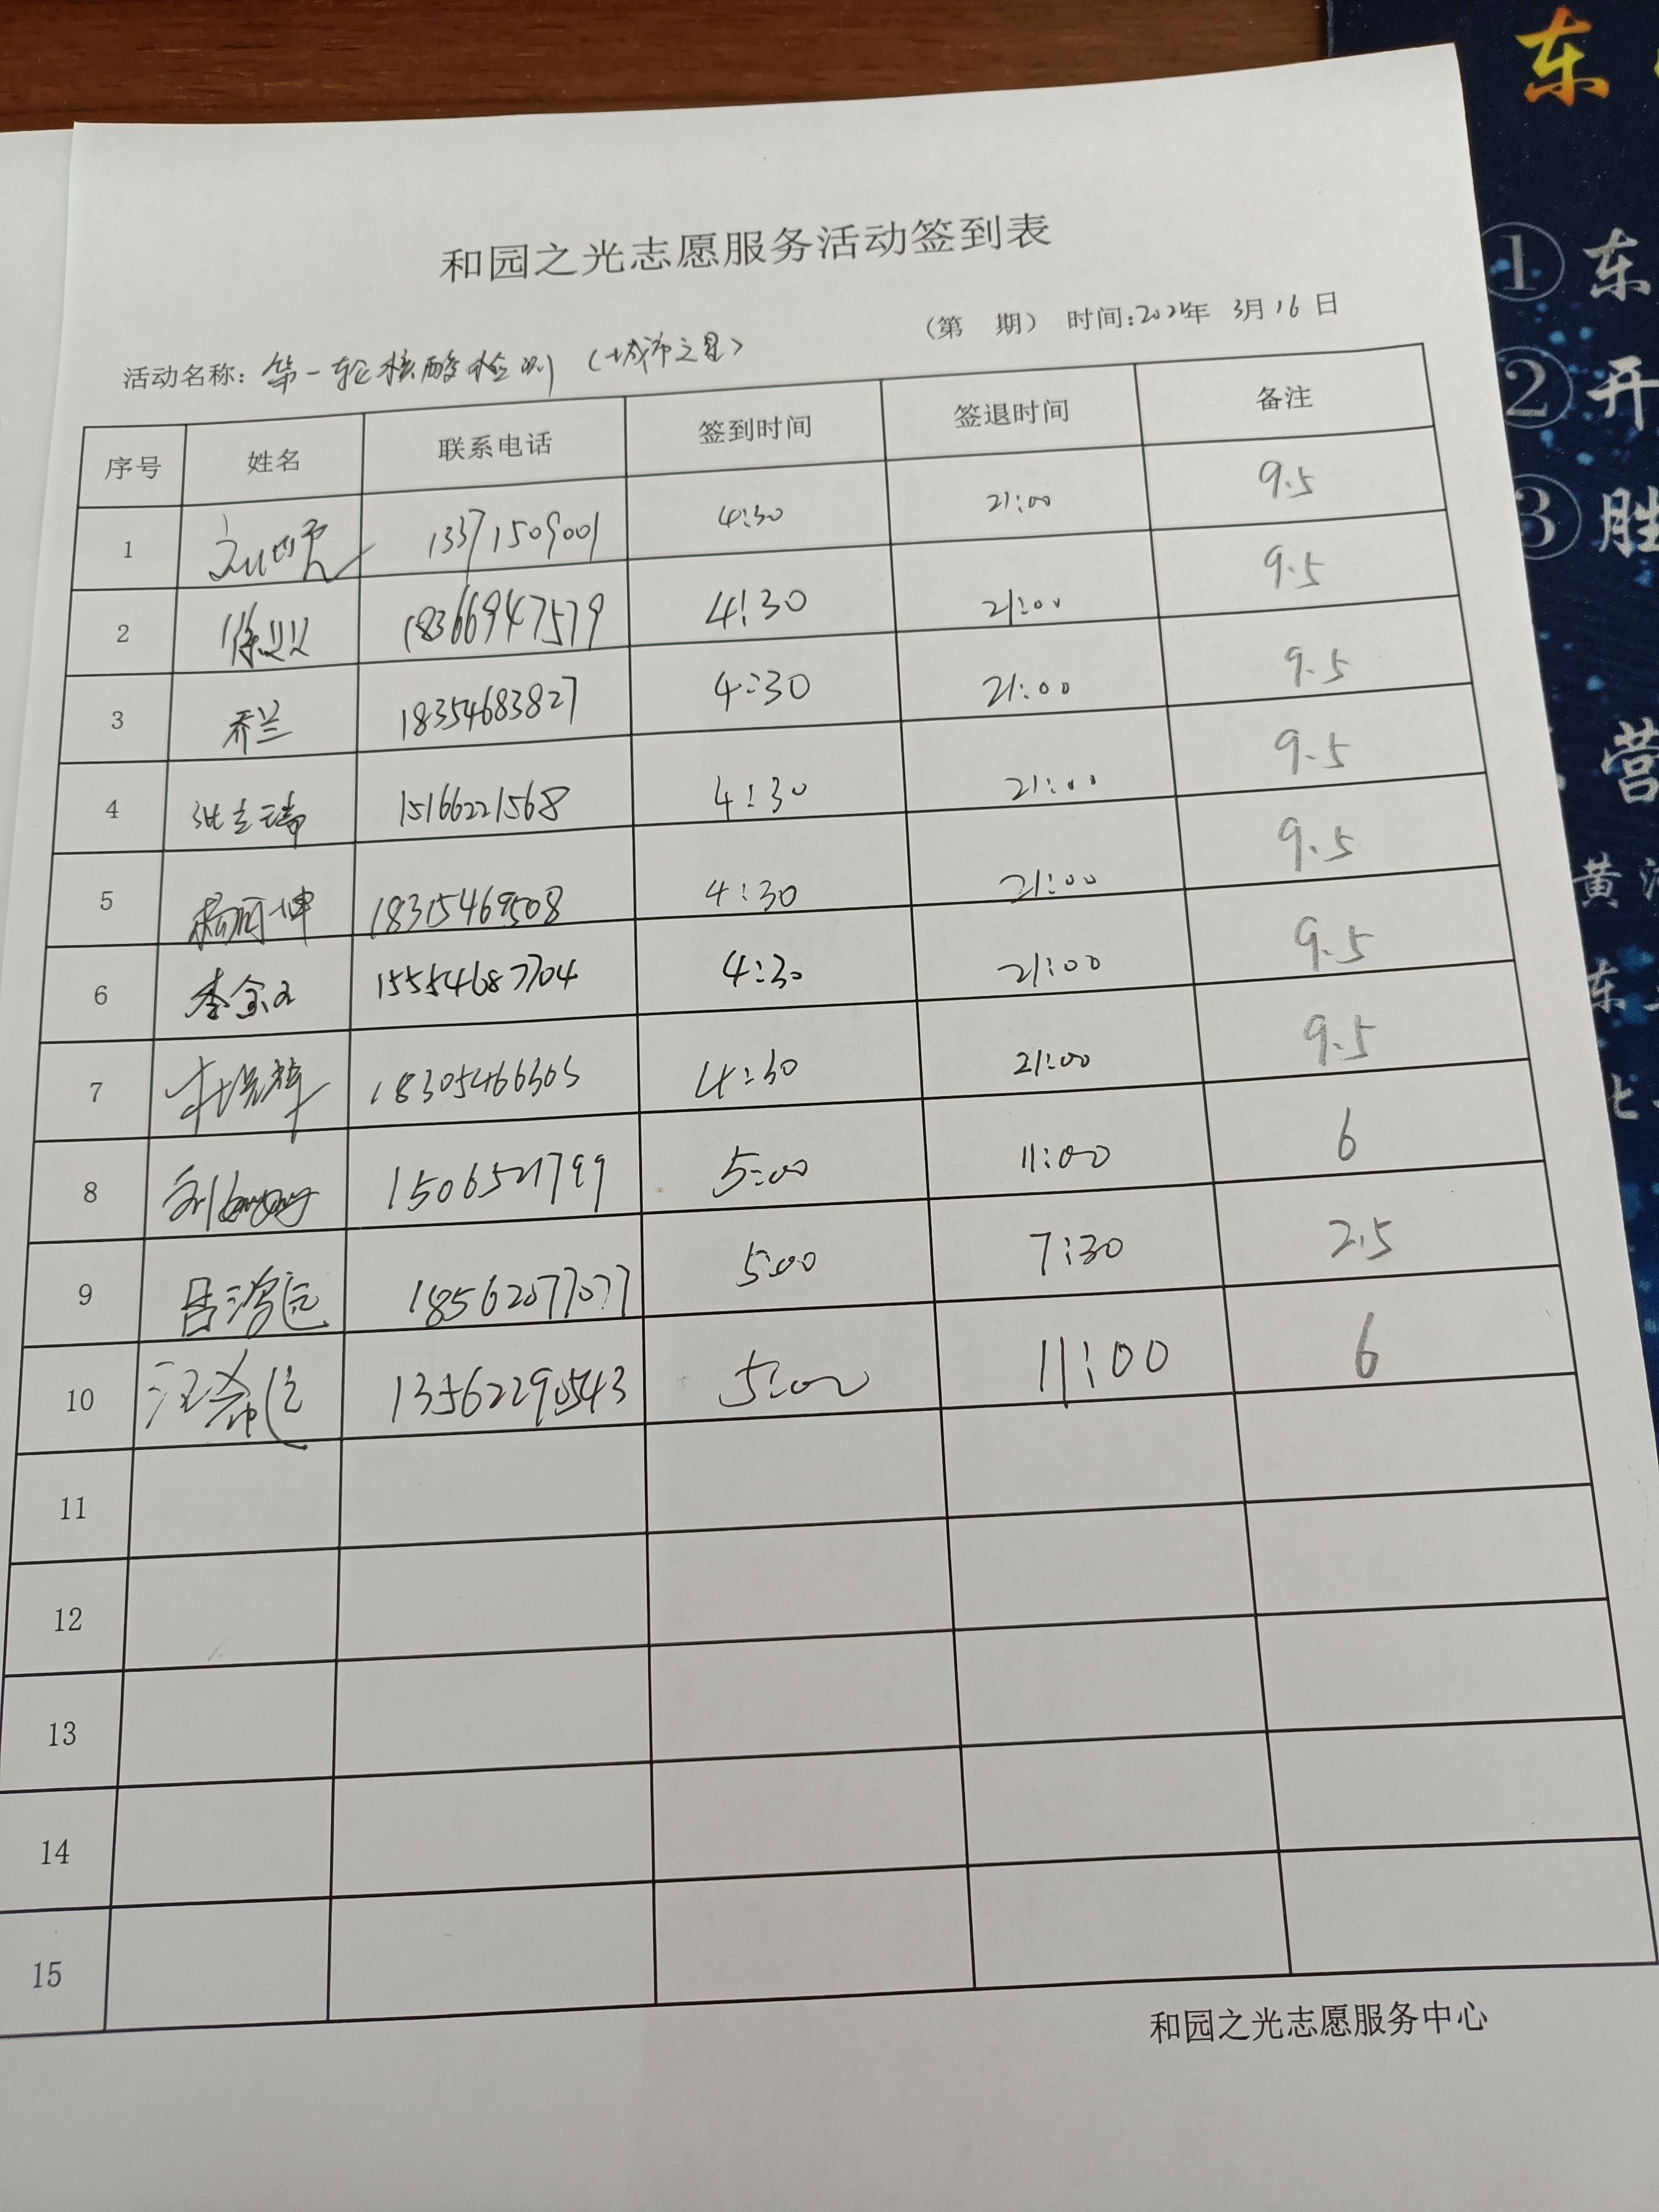 东
① 东
② 开
③ 胜
营
黄
东
七
和园之光志愿服务活动签到表
(第 期) 时间:2022年 3月16日
活动名称: 第一轮核酸检测 (城市之星)
序号 姓名 联系电话 签到时间 签退时间 备注
1 13371509001 4:30 21:00 9.5
2 徐双双 18366947579 4:30 21:00 9.5
3 乔兰 18354683827 4:30 21:00 9.5
4 15166221568 4:30 21:00 9.5
5 4:30 21:00 9.5
6 15554687704 4:30 21:00 9.5
7 18305466303 4:30 21:00 9.5
8 5:00 11:00 6
9 18562077077 5:00 7:30 2.5
10 13562290543 5:00 11:00 6
11
12
13
14
15
和园之光志愿服务中心